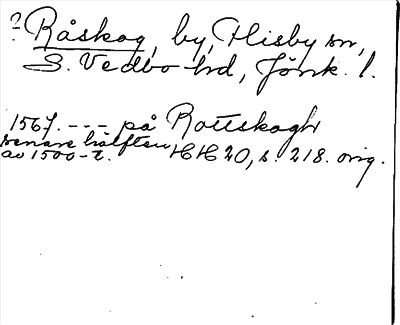 ? Råskog, by, Flisby sn,
S. Vedbo hd, Jönk. l.
1567. --- på Rottskogh
senare hälften
av 1500-t. HH 20, s. 218. orig.